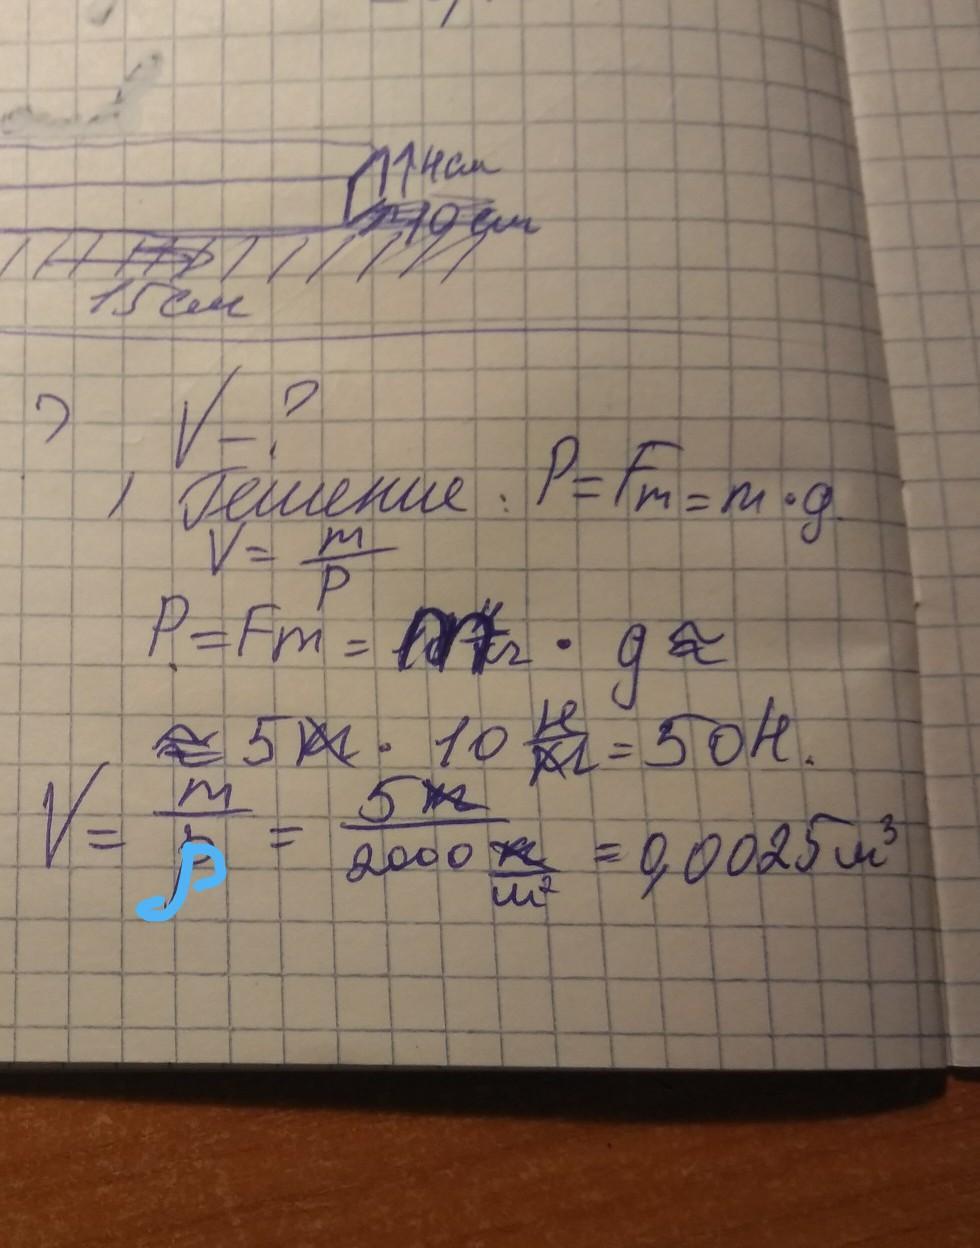 4см
10 см
15 см
V - ?
Решение: P = Fт = m · g
V = m/ρ
P = Fт = · g ≈
≈ 5 кг · 10 Н/кг = 50 Н.
V = m/ρ = 5 кг / 2000 кг/м² = 0,0025 м³